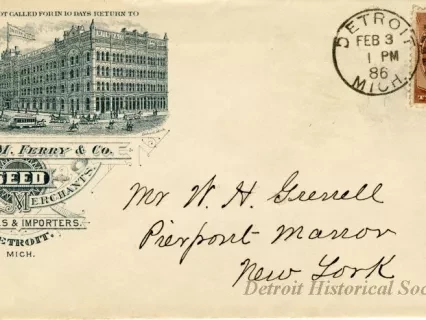 OT CALLED FOR IN 10 DAYS RETURN TO
M. FERRY & CO.
SEED
MERCHANTS.
S & IMPORTERS.
DETROIT.
MICH.
DETROIT
FEB 3
1 PM
86
MICH.
Mr W. H. Grenell
Pierpont Manor
New York
Detroit Historical Soc